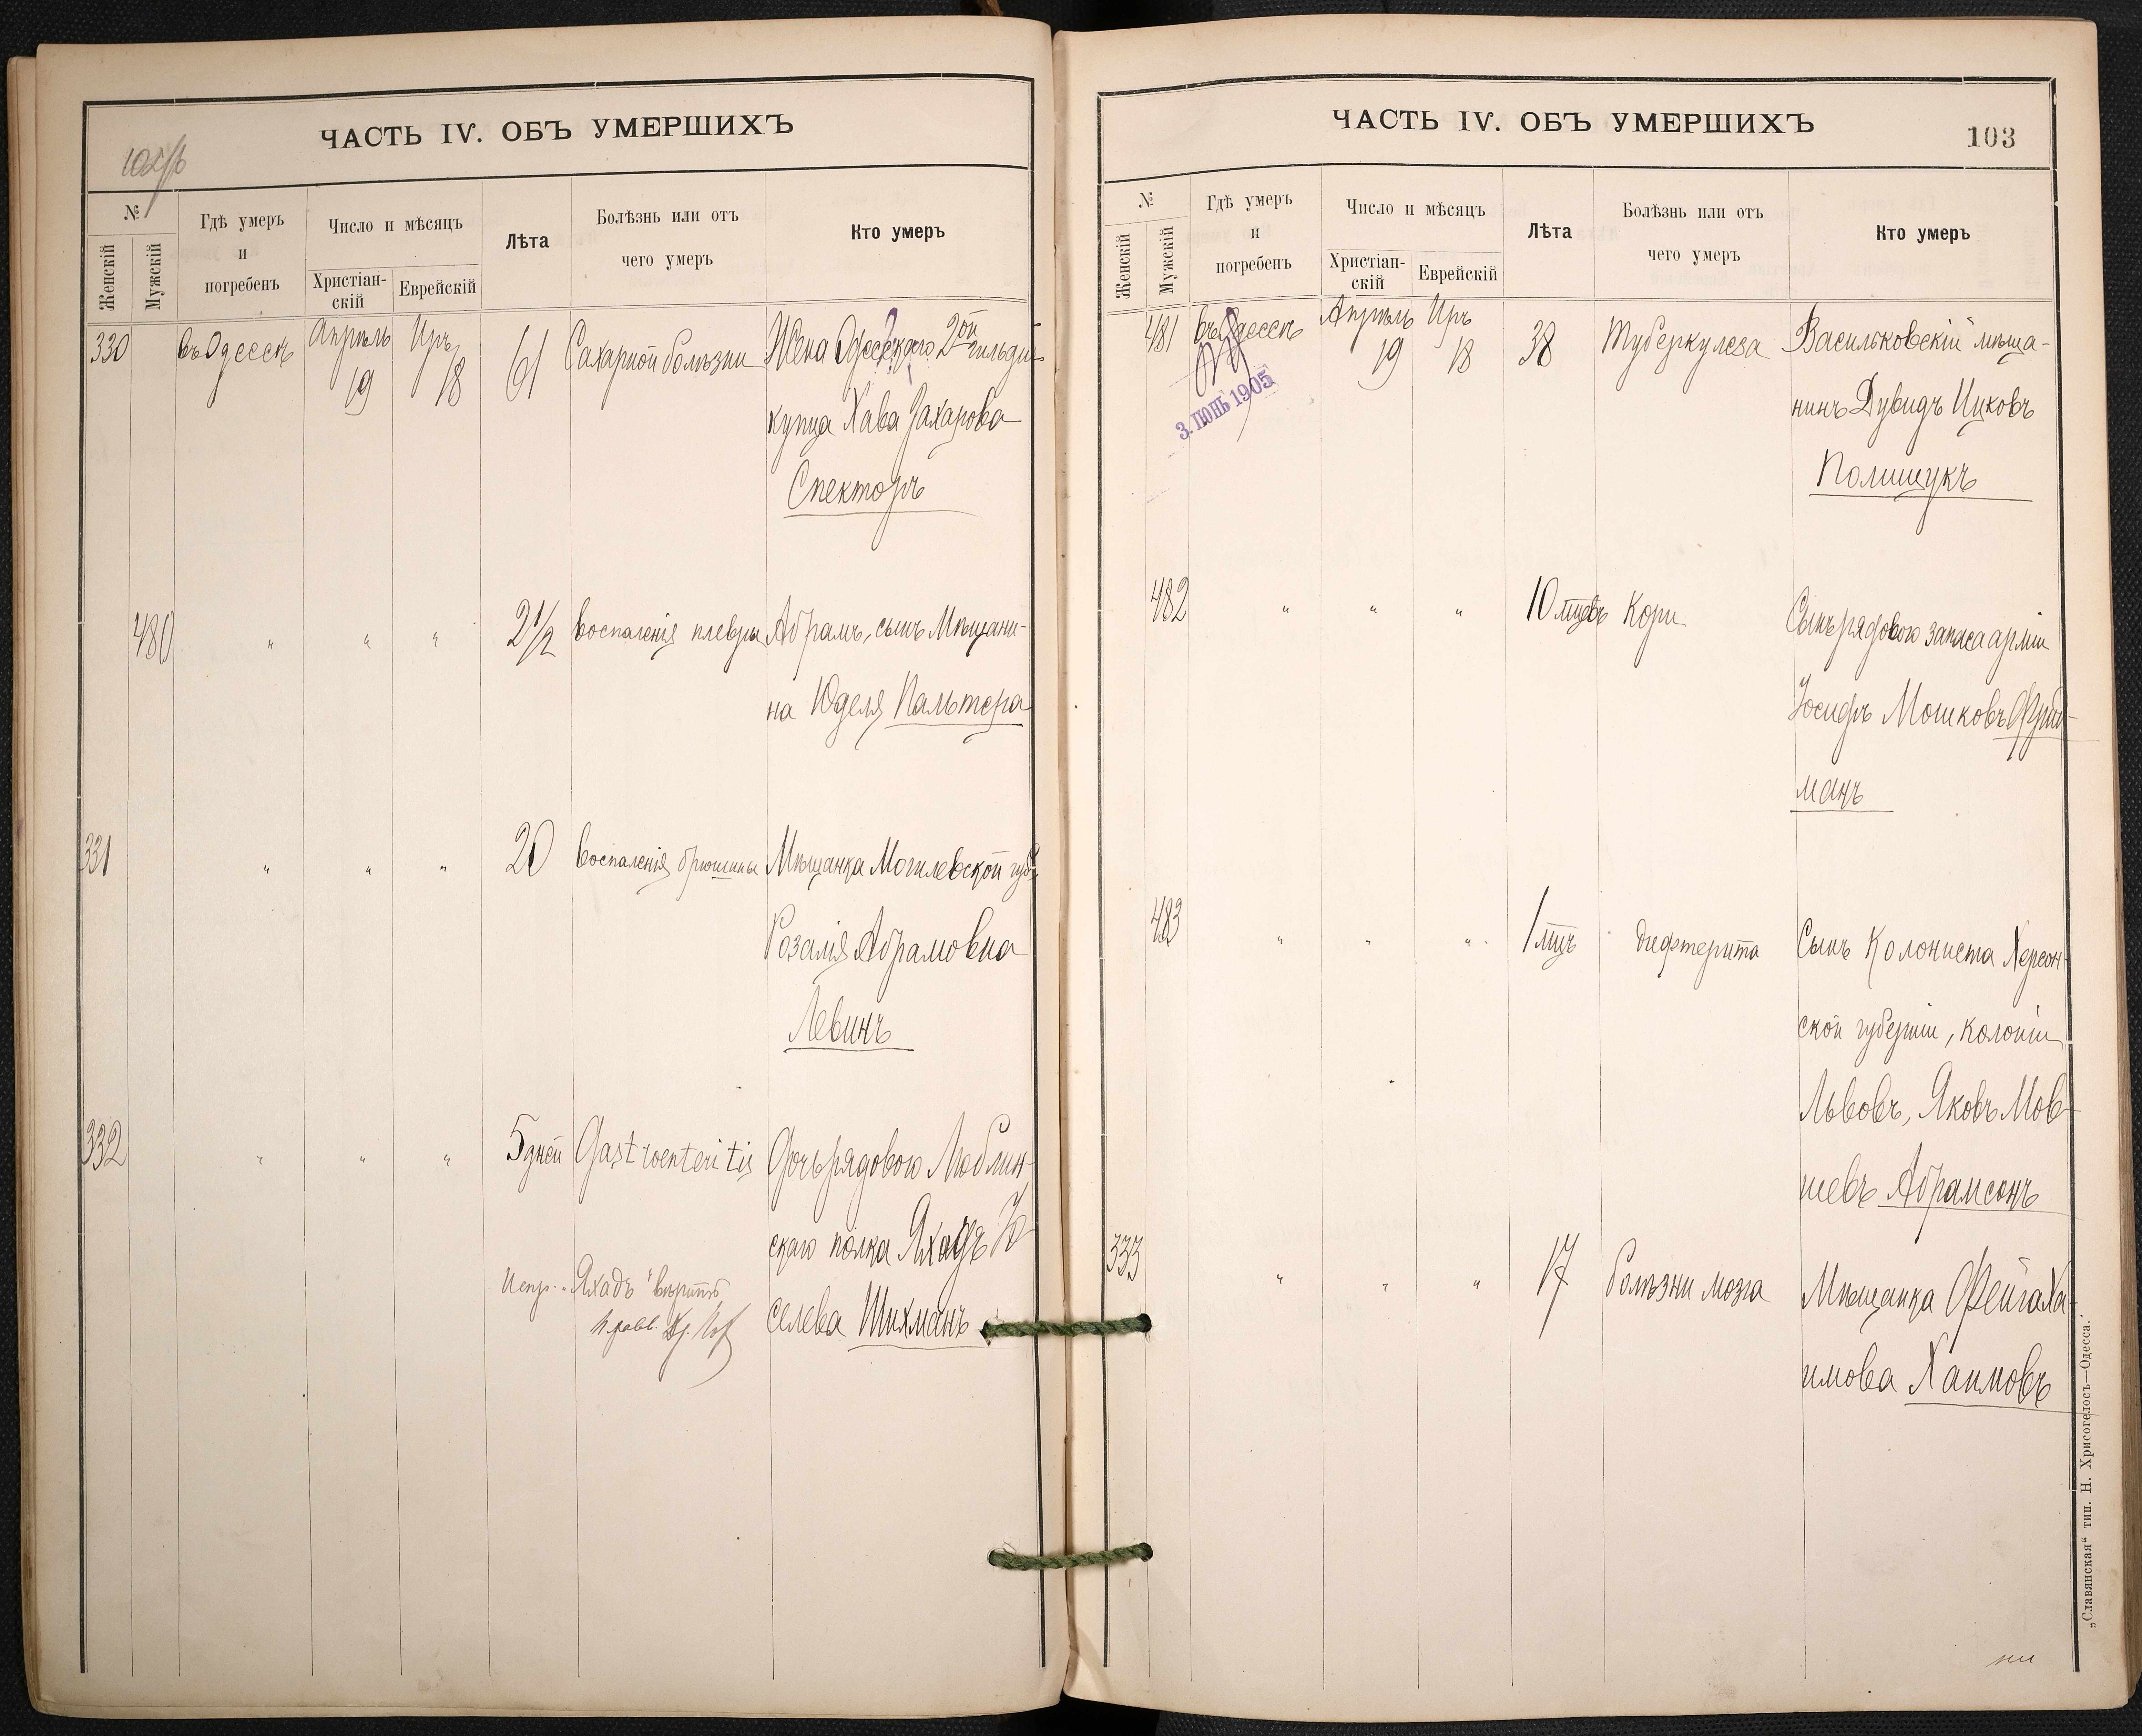 ЧАСТЬ IV. ОБЪ УМЕРШИХЪ
№
Женскій
Мужскій
Гдѣ умеръ
и
погребенъ
Число и мѣсяцъ
Христіан-
скій
Еврейскій
Лѣта
Болѣзнь или отъ
чего умеръ
Кто умеръ
330 въ Одессѣ Апрѣль 19 Иръ 18 61 Сахарной болѣзни Жена Одесскаго 2ой гильдіи
купца Хава Захарова
Спекторъ
480 " " " 2 1/2 воспаленія плевры Абрамъ, сынъ Мѣщани-
на Юделя Пальтера
331 " " " 20 воспаленія брюшины Мѣщанка Могилевской губ.
Розалія Абрамовна
Левинъ
332 " " " 5 дней Gastroenteritis Дочь рядового Люблин-
скаго полка Яхадъ Іо-
селева Шихманъ
Испр. "Яхадъ" вѣрить
ЧАСТЬ IV. ОБЪ УМЕРШИХЪ
103
№
Женскій
Мужскій
Гдѣ умеръ
и
погребенъ
Число и мѣсяцъ
Христіан-
скій
Еврейскій
Лѣта
Болѣзнь или отъ
чего умеръ
Кто умеръ
481 въ Одессѣ Апрѣль 19 Иръ 18 38 Туберкулеза Васильковскій мѣща-
нинъ Дувидъ Ицковъ
Полищукъ
3. ІЮНЬ 1905
482 " " " 10 мцевъ Кори Сынъ рядового запаса арміи
Іосифъ Мошковъ Фрид-
манъ
483 " " " 1 мцъ дифтерита Сынъ Колониста Херсон-
ской губерніи, колоніи
Львовъ, Яковъ Мов-
шевъ Абрамсонъ
333 " " " 17 болѣзни мозга Мѣщанка Фейга Ха-
имова Хаимовъ
„Славянская“ тип. Н. Хрисогелосъ—Одесса.